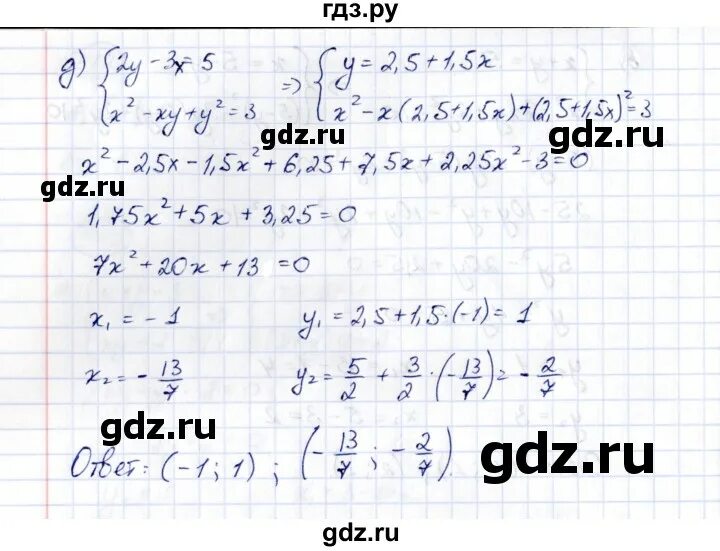 гдз.ру
д) { 2y - 3x = 5 ⇒ { y = 2,5 + 1,5x
x² - xy + y² = 3 x² - x(2,5+1,5x) + (2,5+1,5x)² = 3
gdz.ru gdz.ru
x² - 2,5x - 1,5x² + 6,25 + 7,5x + 2,25x² - 3 = 0
gdz.ru gdz.ru
1,75x² + 5x + 3,25 = 0
7x² + 20x + 13 = 0
x₁ = - 1 y₁ = 2,5 + 1,5·(-1) = 1
x₂ = - 13/7 y₂ = 5/2 + 3/2 · (- 13/7) = - 2/7
gdz.ru gdz.ru
Ответ: (-1; 1) ; (- 13/7 ; - 2/7).
gdz.ru gdz.ru
gdz.ru